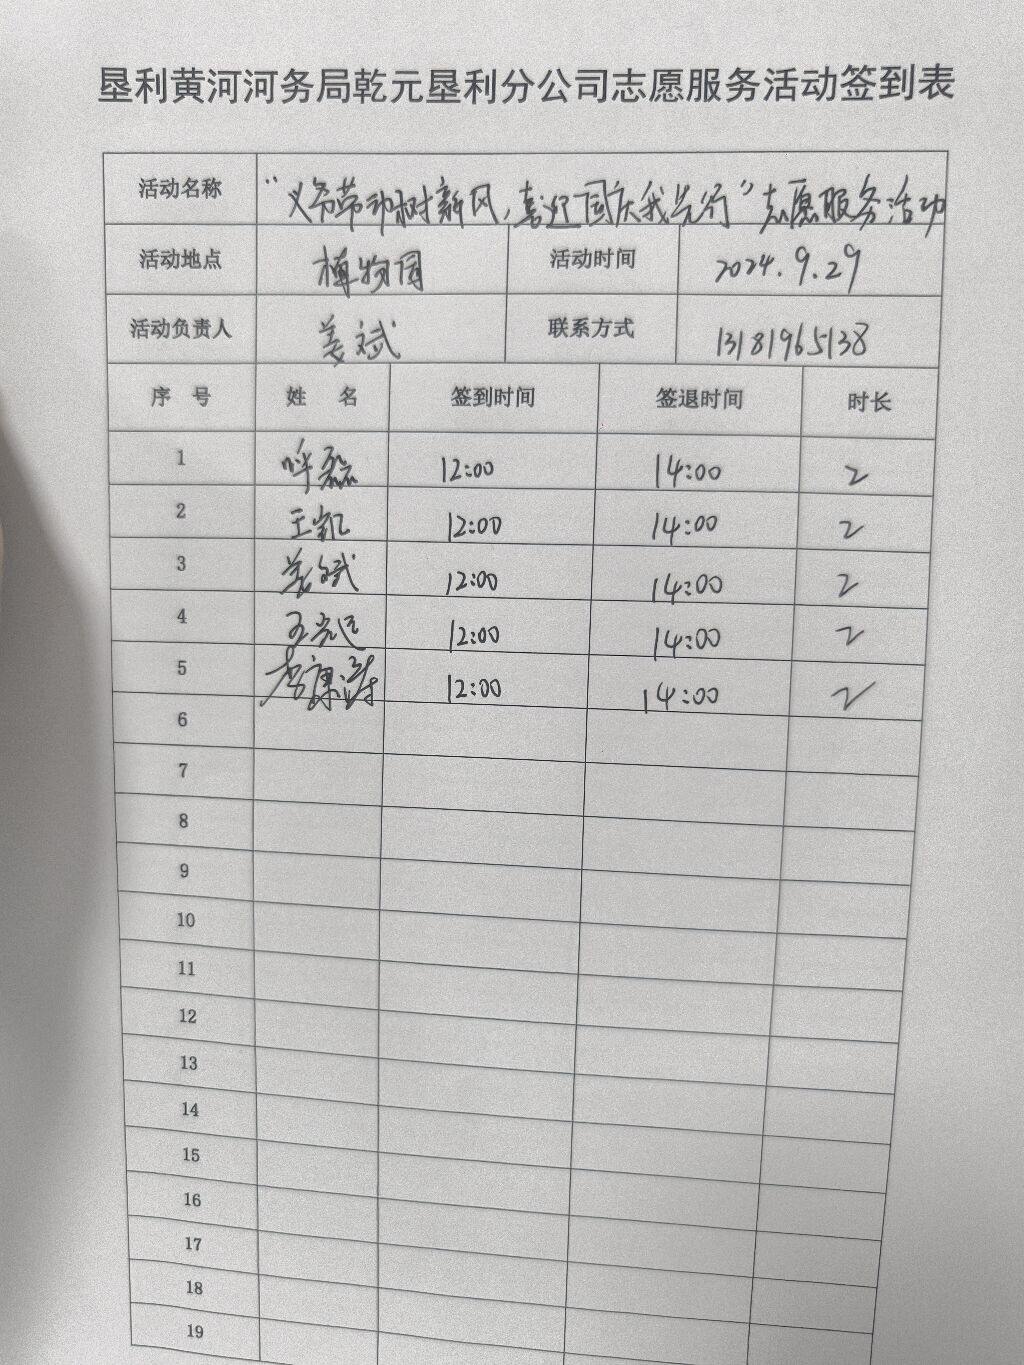 垦利黄河河务局乾元垦利分公司志愿服务活动签到表
活动名称 “义务劳动树新风，喜迎国庆我先行”志愿服务活动
活动地点 植物园 活动时间 2024.9.29
活动负责人 姜斌 联系方式 13181965138
序 号 姓 名 签到时间 签退时间 时长
1 呼磊 12:00 14:00 2
2 王凯 12:00 14:00 2
3 姜斌 12:00 14:00 2
4 12:00 14:00 2
5 李康 12:00 14:00 2
6
7
8
9
10
11
12
13
14
15
16
17
18
19